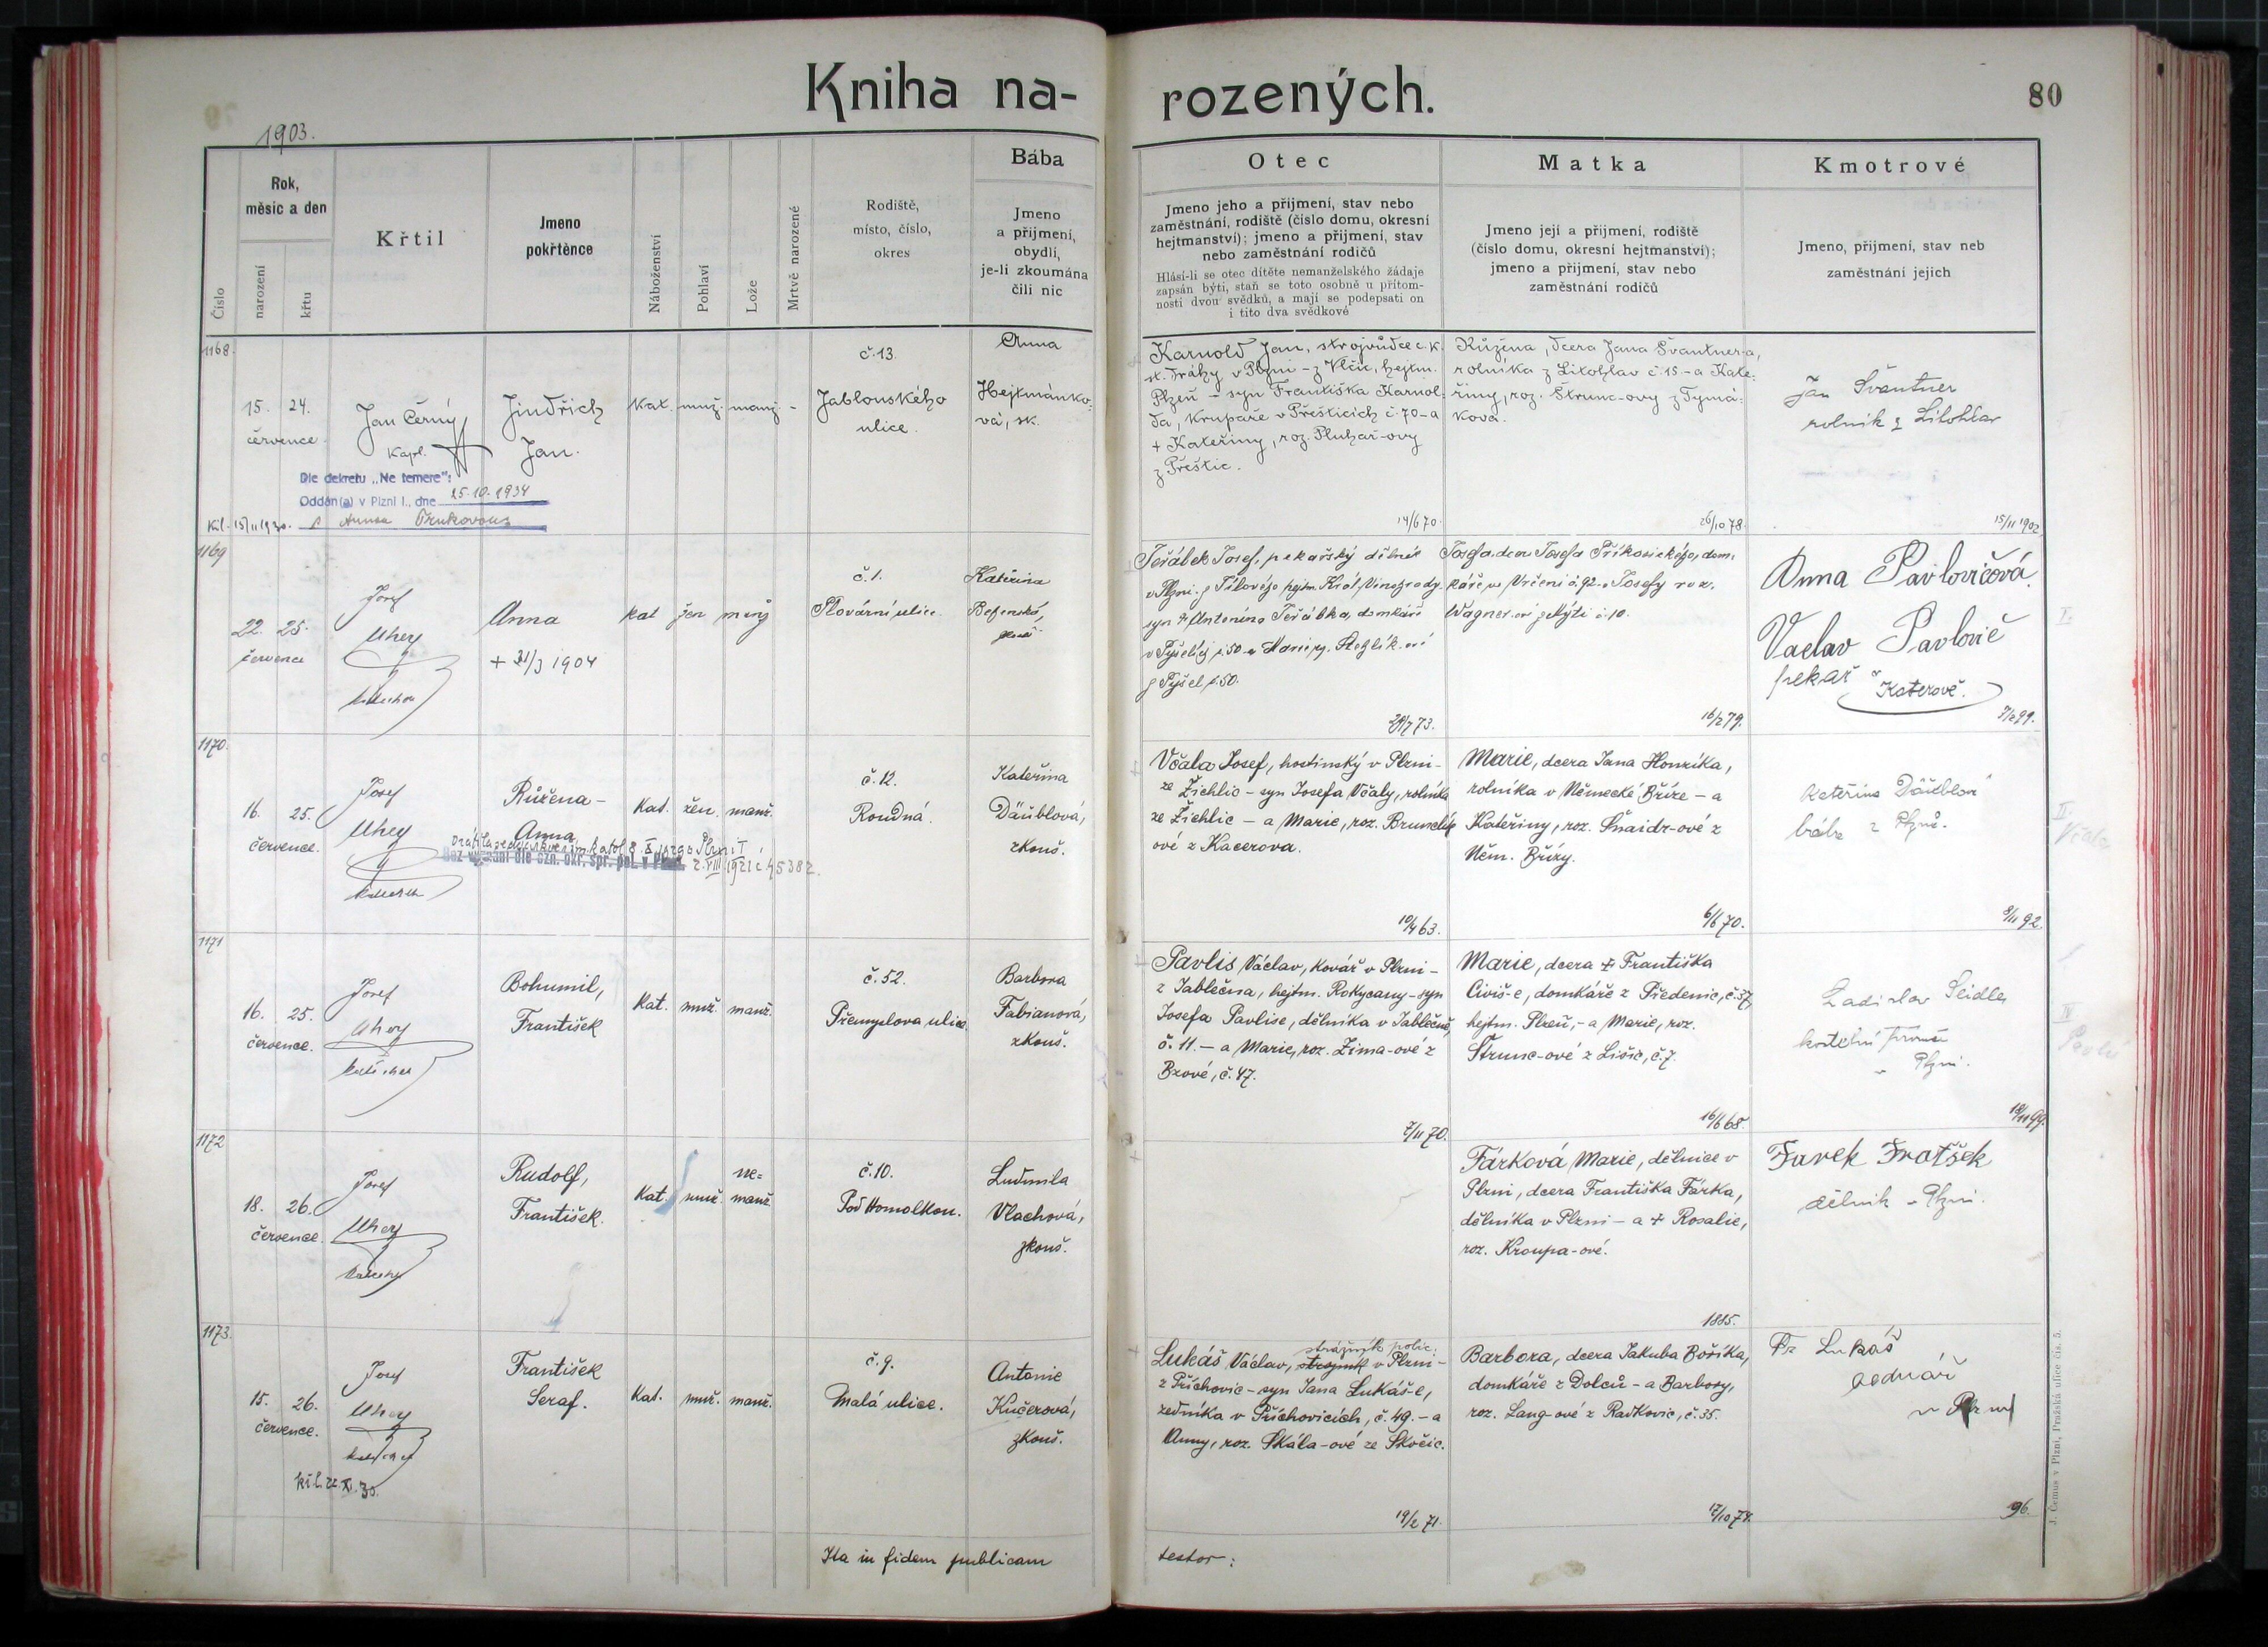 Kniha na-
rozených.
80
1903.
Číslo
Rok,
měsíc a den
narození
křtu
Křtil
Jmeno
pokřtěnce
Náboženství
Pohlaví
Lože
Mrtvě narozené
Rodiště,
místo, číslo,
okres
Bába
Jmeno
a příjmení,
obydlí,
je-li zkoumána
čili nic
Otec
Jmeno jeho a příjmení, stav nebo
zaměstnání, rodiště (číslo domu, okresní
hejtmanství); jmeno a příjmení, stav
nebo zaměstnání rodičů
Hlásí-li se otec dítěte nemanželského žádaje
zapsán býti, staň se toto osobně u přítom-
nosti dvou svědků, a mají se podepsati on
i tito dva svědkové
Matka
Jmeno její a příjmení, rodiště
(číslo domu, okresní hejtmanství);
jmeno a příjmení, stav nebo
zaměstnání rodičů
Kmotrové
Jmeno, příjmení, stav neb
zaměstnání jejich
1168.
15. 24.
července
Jan Černý
kapl.
Jindřich
Jan.
Kat. muž. manž. -
č. 13.
Jablonského
ulice.
Anna
Hejtmánko-
vá, zk.
Dle dekretu „Ne temere":
Oddán(a) v Plzni I., dne 25.10.1934
s Annou
Karnold Jan, strojvůdce c. k.
st. dráhy v Plzni - z Vlčic, hejtm.
Plzeň - syn Františka Karnol-
da, krupaře v Přešticích č. 70 - a
+ Kateřiny, roz. Pluhař-ovy
z Přeštic.
14/6 70.
Růžena, dcera Jana Švantner-a,
rolníka z Litohlav č. 15 - a Kate-
řiny, roz. Štrunc-ovy z Tymá-
kova.
26/10 78.
Jan Švantner
rolník z Litohlav
15/II 1902
1169
22. 25.
července
Josef
Uhey
Anna
+ 31/3 1904
kat žen manž
č. 1.
Plovární ulice.
Kateřina
Teřábek Josef, pekařský dělník
v Plzni - z Tílového hejtm. Král. Vinohrady -
syn + Antonína Teřábka, domkáře
v Pyšelích č. 50 a Marie roz. Stehlík-ové
z Pyšel č. 50.
29/7 73.
Josefa, dcera Josefa Příkosického, dom-
káře ve Vrčeni č. 92 - a Josefy roz.
Wagner-ové z Mýti č. 10.
16/2 79.
Anna Pavlovičová.
Vaclav Pavlovič
pekař v
Kateřově.
1170.
16. 25.
července.
Josef
Uhey
Růžena -
Anna
Kat. žen. manž.
č. 12.
Roudná.
Kateřina
Däublová,
zkouš.
Včala Josef, hostinský v Plzni -
ze Žichlic - syn Josefa Včaly, rolníka
ze Žichlic - a Marie, roz. Brunclík-
ové z Kacerova.
10/4 63.
Marie, dcera Jana Honzíka,
rolníka v Německé Bříze - a
Kateřiny, roz. Šnaidr-ové z
Něm. Břízy.
6/6 70.
Kateřina Däublová
bába z Plzně.
8/II 92.
1171
16. 25.
července.
Josef
Uhey
Bohumil,
František
Kat. muž. manž.
č. 52.
Přemyslova ulice.
Barbora
Fabianová,
zkouš.
Pavlis Václav, kovář v Plzni -
z Jablečna, hejtm. Rokycany - syn
Josefa Pavlise, dělníka v Jablečně,
č. 11. - a Marie, roz. Zima-ové z
Bzové, č. 47.
7/II 70.
Marie, dcera + Františka
Civiš-e, domkáře z Předenic, č. 37,
hejtm. Plzeň, - a Marie, roz.
Štrunc-ové z Lišic, č. 7.
16/6 68.
Ladislav Seidler
v Plzni.
18/II 99.
1172
18. 26.
července.
Josef
Uhey
Rudolf,
František.
Kat. muž. ne-
manž.
č. 10.
Pod Homolkou.
Ludmila
Vlachová,
zkouš.
Fárková Marie, dělnice v
Plzni, dcera Františka Fárka,
dělníka v Plzni - a + Rosalie,
roz. Kroupa-ové.
1885.
Farek Fratšek
dělník v Plzni.
1173.
15. 26.
července.
Josef
Uhey
František
Seraf.
Kat. muž. manž.
č. 9.
Malá ulice.
Antonie
Kučerová,
zkouš.
strážník polic.
Lukáš Václav, strojník v Plzni -
z Příchovic - syn Jana Lukáš-e,
zedníka v Příchovicích, č. 49. - a
Anny, roz. Skála-ové ze Skočic.
19/2 71.
Barbora, dcera Jakuba Boříka,
domkáře z Dolců - a Barbory,
roz. Lang-ové z Radkovic, č. 35.
17/10 78.
Fr Lukáš
bednář
v Plzni
96.
Ita in fidem publicam
testor:
J. Čemus v Plzni, Pražská ulice čís. 5.